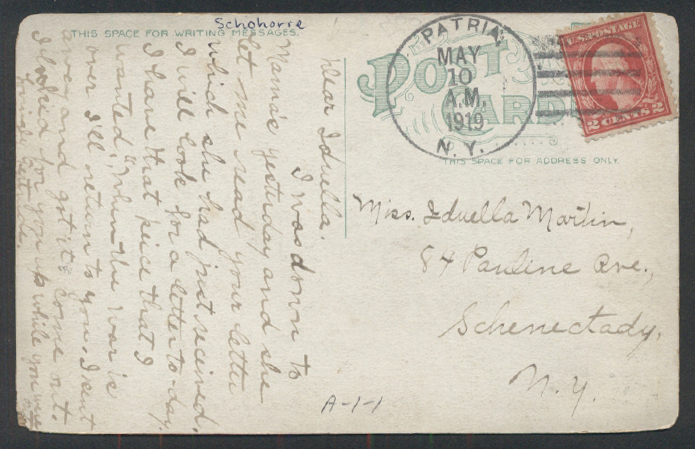 Schohorre
THIS SPACE FOR WRITING MESSAGES.
Dear Iduella.
I was down to
Mama's yesterday and she
let me read your letter
which she had just received.
I will look for a letter to-day.
I have that piece that I
wanted, "When the War is
over I'll return to you. I sent
away and got it. Come out.
I looked for you up while you were
POST CARD
PATRIA,
MAY
10
A.M.
1919
N.Y.
U.S. POSTAGE
2 CENTS 2
THIS SPACE FOR ADDRESS ONLY.
Miss. Iduella Martin,
84 Pauline Ave.,
Schenectady,
N.Y.
A-1-1